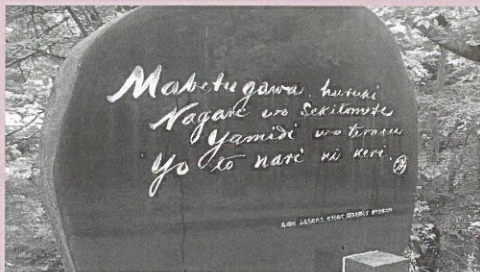 Mabetugawa huruki
Nagare wo Sekitomete
Yamidi wo terasu
Yo to nari ni keri.